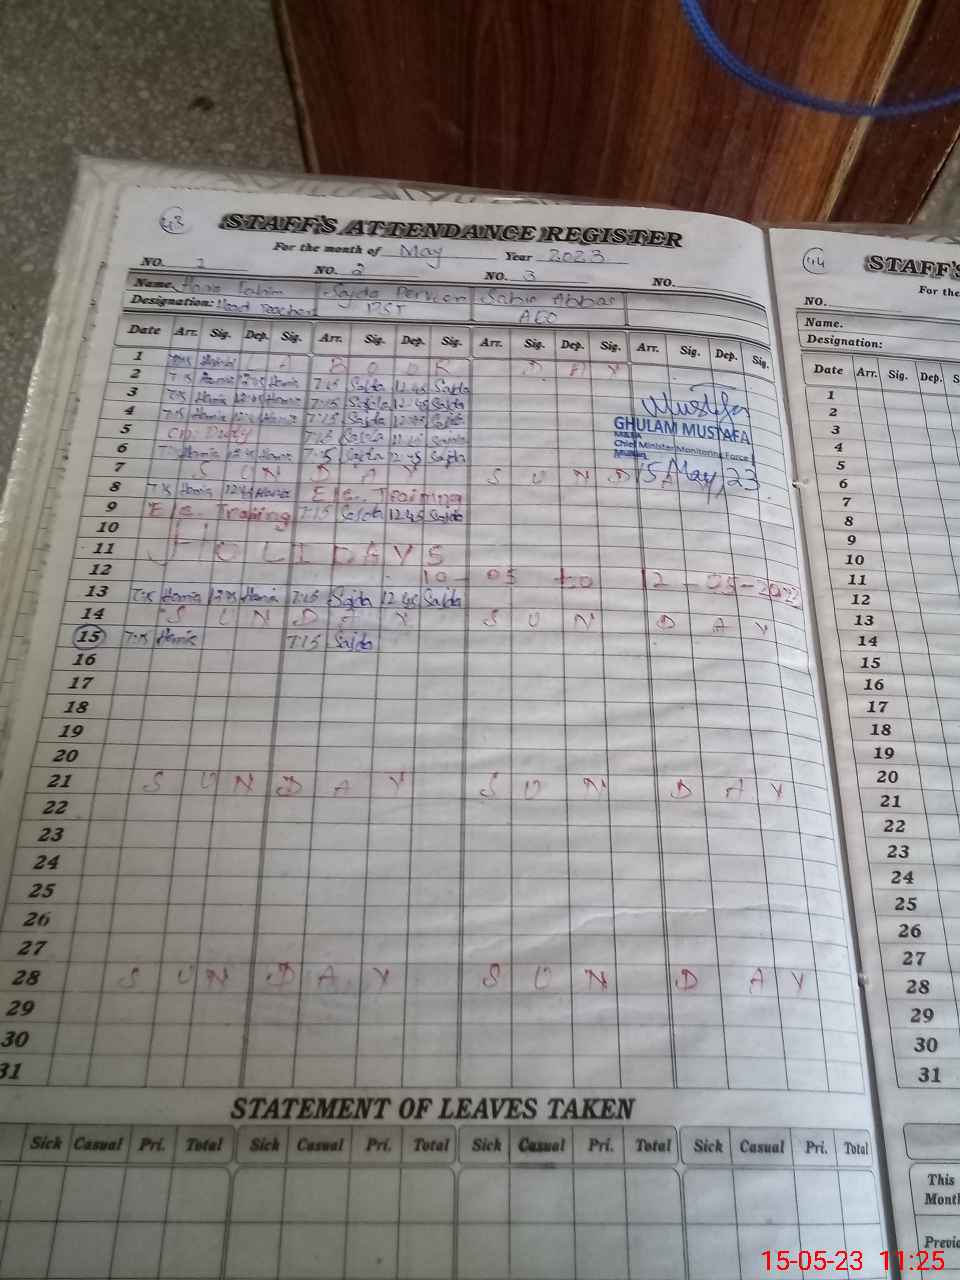 43 STAFF'S ATTENDANCE REGISTER
For the month of May Year 2023
NO. 1 NO. 2 NO. 3 NO.
Name. Sajda Perveen Sabir Abbas
Designation: Head Teacher PST AEO
Date Arr. Sig. Dep. Sig. Arr. Sig. Dep. Sig. Arr. Sig. Dep. Sig. Arr. Sig. Dep. Sig.
1 L A B O U R D A Y
2 7:15 12:45 7:15 Sajda 12:45 Sajda
3 7:15 12:45 7:15 Sajda 12:45 Sajda
4 7:15 12:45 7:15 Sajda 12:45 Sajda
5 Duty 7:15 Sajda Sajda
6 7:15 12:45 7:15 Sajda 12:45 Sajda
7 S U N D A Y S U N D A
8 7:15 12:45 Training
9 Training 7:15 Sajda 12:45 Sajda
10
11 HOLIDAYS
12 10-05 to 12-05-2023
13 7:15 7:15 Sajda 12:45 Sajda
14 S U N D A Y S U N D A Y
15 7:15 7:15 Sajda
16
17
18
19
20
21 S U N D A Y S U N D A Y
22
23
24
25
26
27
28 S U N D A Y S U N D A Y
29
30
31
Mustafa
GHULAM MUSTAFA
Chief Minister Monitoring Force
15 May, 23
STATEMENT OF LEAVES TAKEN
Sick Casual Pri. Total Sick Casual Pri. Total Sick Casual Pri. Total Sick Casual Pri. Total
44 STAFF'S
For the
NO.
Name.
Designation:
Date Arr. Sig. Dep. S
1
2
3
4
5
6
7
8
9
10
11
12
13
14
15
16
17
18
19
20
21
22
23
24
25
26
27
28
29
30
31
This
Month
Previo
15-05-23 11:25